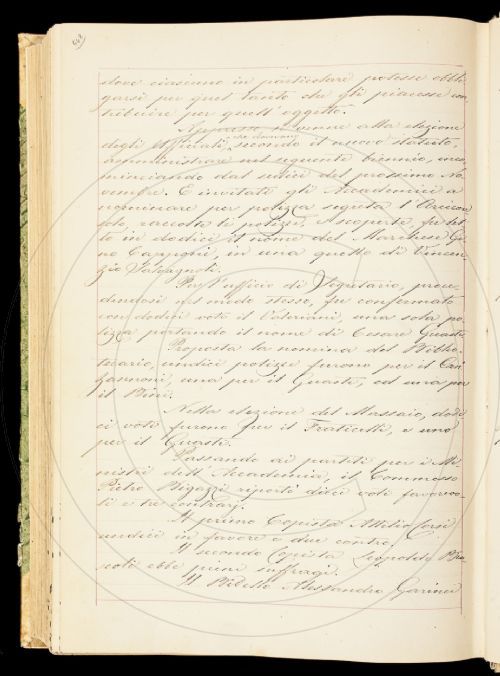 dove ciascuno in particolare potesse obbli
garsi per quel tanto che gli piacesse con
tribuire per quell'oggetto.
Appresso si venne alla elezione
degli Ufficiali, secondo il nuovo statuto,
che dovranno
amministrare nel seguente biennio, inco
minciando dal sedici del prossimo No
vembre. E invitati gli Accademici a
nominare per polizza segreta l'Arcicon
solo, raccolte le polizze, e scoperte, fu let
to in dodici il nome del Marchese Gi
no Capponi, in una quello di Vincen
zio Salvagnoli.
Per l'ufficio di Segretario, proce
dendosi nel modo stesso, fu confermato
con dodici voti il Valeriani, una sola po
lizza portando il nome di Cesare Guasti.
Proposta la nomina del Biblio
tecario, undici polizze furono per il Can
Zannoni, una per il Guasti, ed una per
il Bini.
Nella elezione del Massaio, dodi
ci voti furono per il Fraticelli, e uno
per il Guasti.
Passando ai partiti per i Mi
nistri dell'Accademia, il Commesso
Pietro Bigazzi riportò dieci voti favorevo
li e tre contrarj.
Il primo Copista Attilio Corsi
undici in favore e due contro.
Il secondo Copista Leopoldo
ebbe pieni suffragi.
Il Bidello Alessandro Garinei